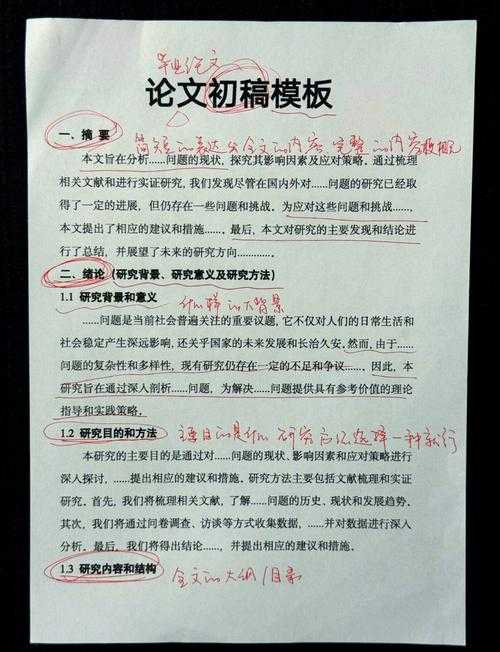 毕业论文
论文初稿模板
一、摘要
简短的表达出全文的内容 完整的内容概况
本文旨在分析……问题的现状,探究其影响因素及应对策略。通过梳理
相关文献和进行实证研究,我们发现尽管在国内外对……问题的研究已经取
得了一定的进展,但仍存在一些问题和挑战。为应对这些问题和挑战……,
本文提出了相应的建议和措施……。最后,本文对研究的主要发现和结论进
行了总结,并展望了未来的研究方向…………。
二、绪论(研究背景、研究意义及研究方法)
1.1 研究背景和意义 什么样的大背景
……问题是当前社会普遍关注的重要议题,它不仅对人们的日常生活和
社会稳定产生深远影响,还关乎国家的未来发展和长治久安。然而,由于……
问题的复杂性和多样性,现有研究仍存在一定的不足和争议……。因此,本
研究旨在通过深入剖析……问题,为解决……问题提供具有参考价值的理论
指导和实践策略。
1.2 研究目的和方法 主要目的是什么 研究方法选择一种就行
本研究的主要目的是通过对……问题的现状、影响因素和应对策略进行
深入探讨,……提出相应的建议和措施。研究方法主要包括文献梳理和实证
研究。首先,我们将梳理相关文献,了解……问题的历史、现状和发展趋势。
其次,我们将通过问卷调查、访谈等方式收集数据,……并对数据进行深入
分析。最后,我们将得出结论……,并提出相应的建议和措施。
1.3 研究内容和结构 全文的大纲/目录